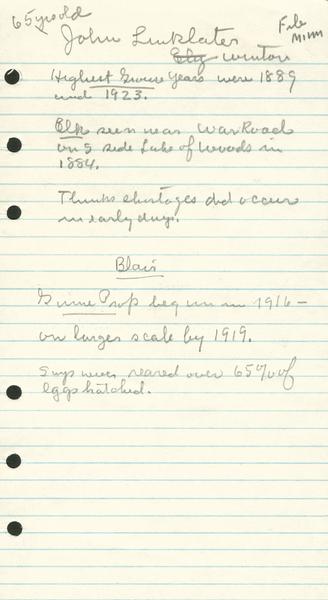 65 yrs old
File
Minn
John Linklater
Ely Winton
Highest Grouse years were 1889
and 1923.
Elk seen near War Road
on S side Lake of Woods in
1884.
Thinks shortages did occur
in early days.
Blair
Game Prop began in 1916 –
on larger scale by 1919.
Says never reared over 65% of
eggs hatched.